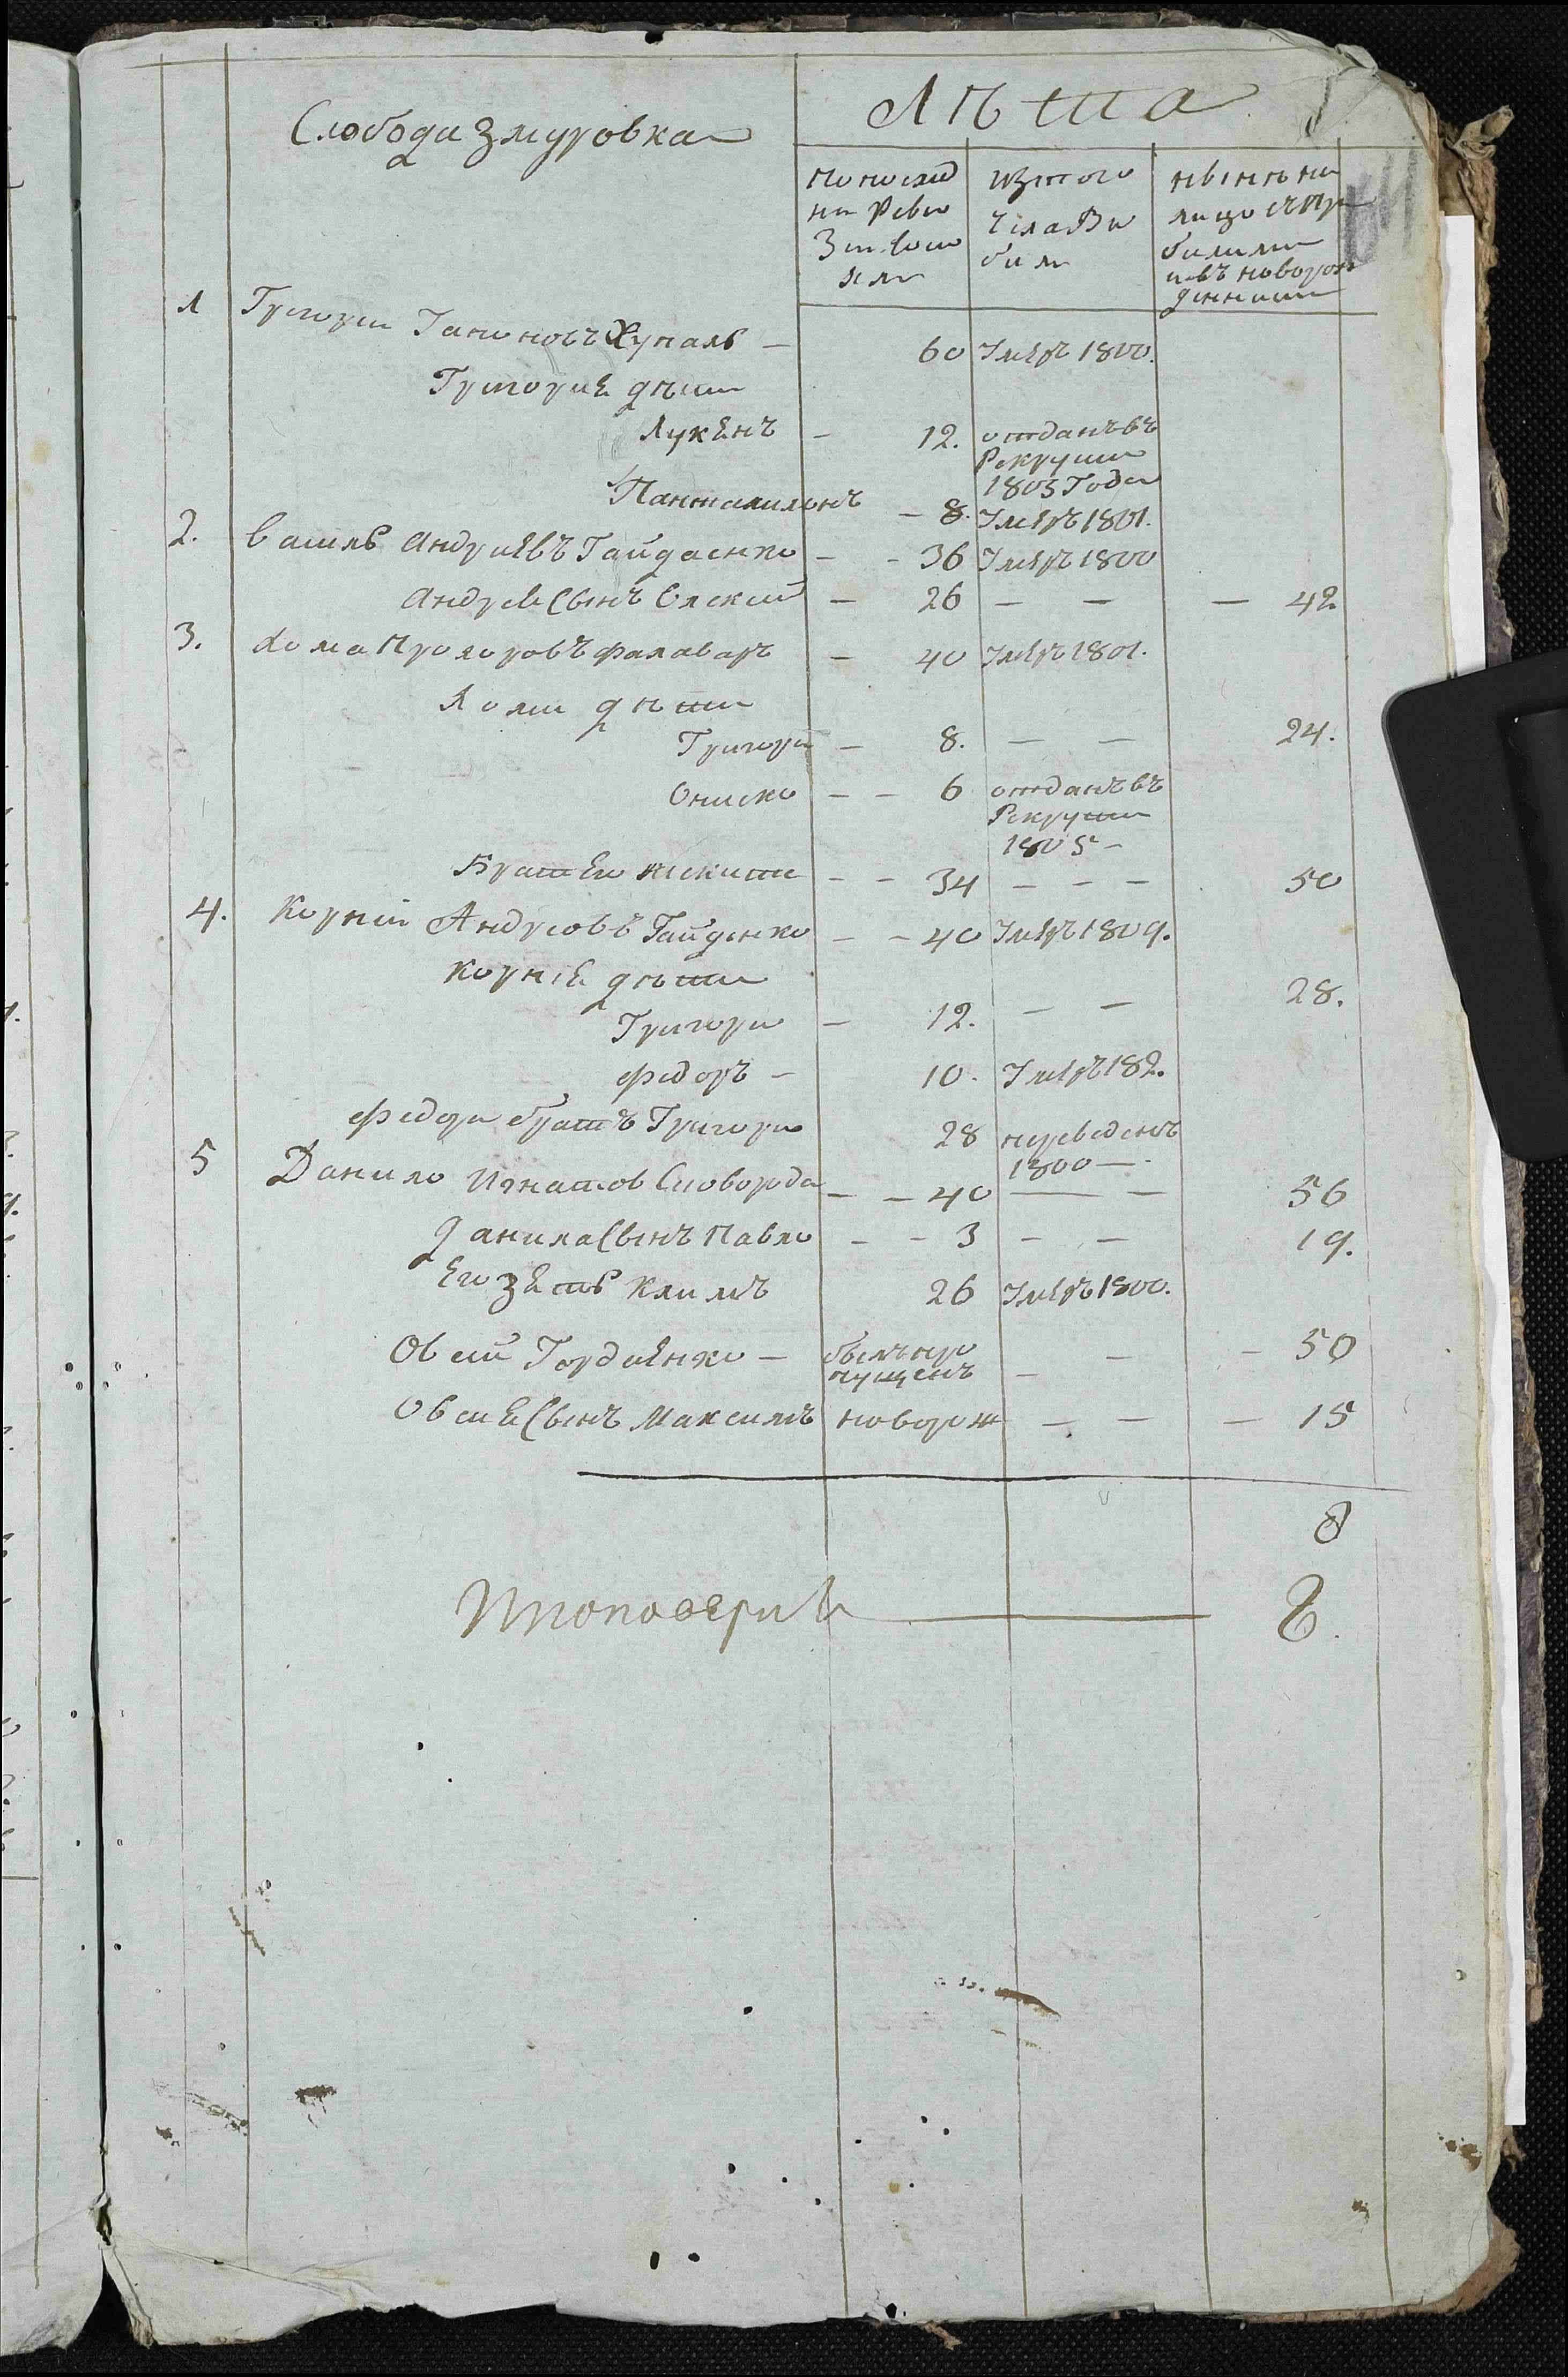 Слобода Змуровка
Лѣта
по послед
ней Реви
зіи было
изтого
числа Вы
было
нынѣ на
лицо съ при
билими
и въ новорож
денними
1 Григорий Хупаль — 60 Умеръ 1800.
Григорие дѣти
Лукенъ — 12. отданъ въ
Рекрути
1805 Года
Панталимонъ — 8. Умеръ 1801.
2. Василь Андриевъ Гайдаенко — - 36 Умеръ 1800
Андрея Сынъ Олексий — 26 — — — 42
3. Хома Прохоровъ — 40 Умеръ 1801.
Хоми дѣти
Григори — 8. — — 24.
Ониско — — 6 отданъ въ
Рекрути
1805 -
Брат Его Никита — — 34 — — — 50
4. Корний Андреовъ Гайденко — — 40 Умеръ 1809.
Корние дѣти
Григори — 12. — — 28.
Федоръ — 10. Умеръ 182.
Федора братъ Григори 28 переведенъ
1800 —
5 Данило Игнатов Сковорода — — 40 — — 56
Данила Сынъ Павло — — 3 — — 19.
Его Зеть Климъ 26 Умеръ 1800.
Овсий Гордиенко — былъ про
пущенъ — — — 50
Овсие Сынъ Максимъ новорож — — — 15
8
8.